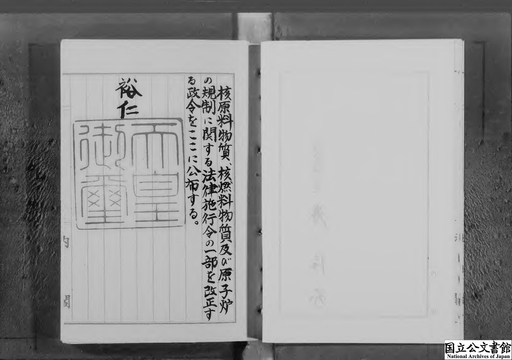 核原料物質、核燃料物質及び原子炉
の規制に関する法律施行令の一部を改正す
る政令をここに公布する。
裕仁
天皇
御璽
内
閣
国立公文書館
National Archives of Japan